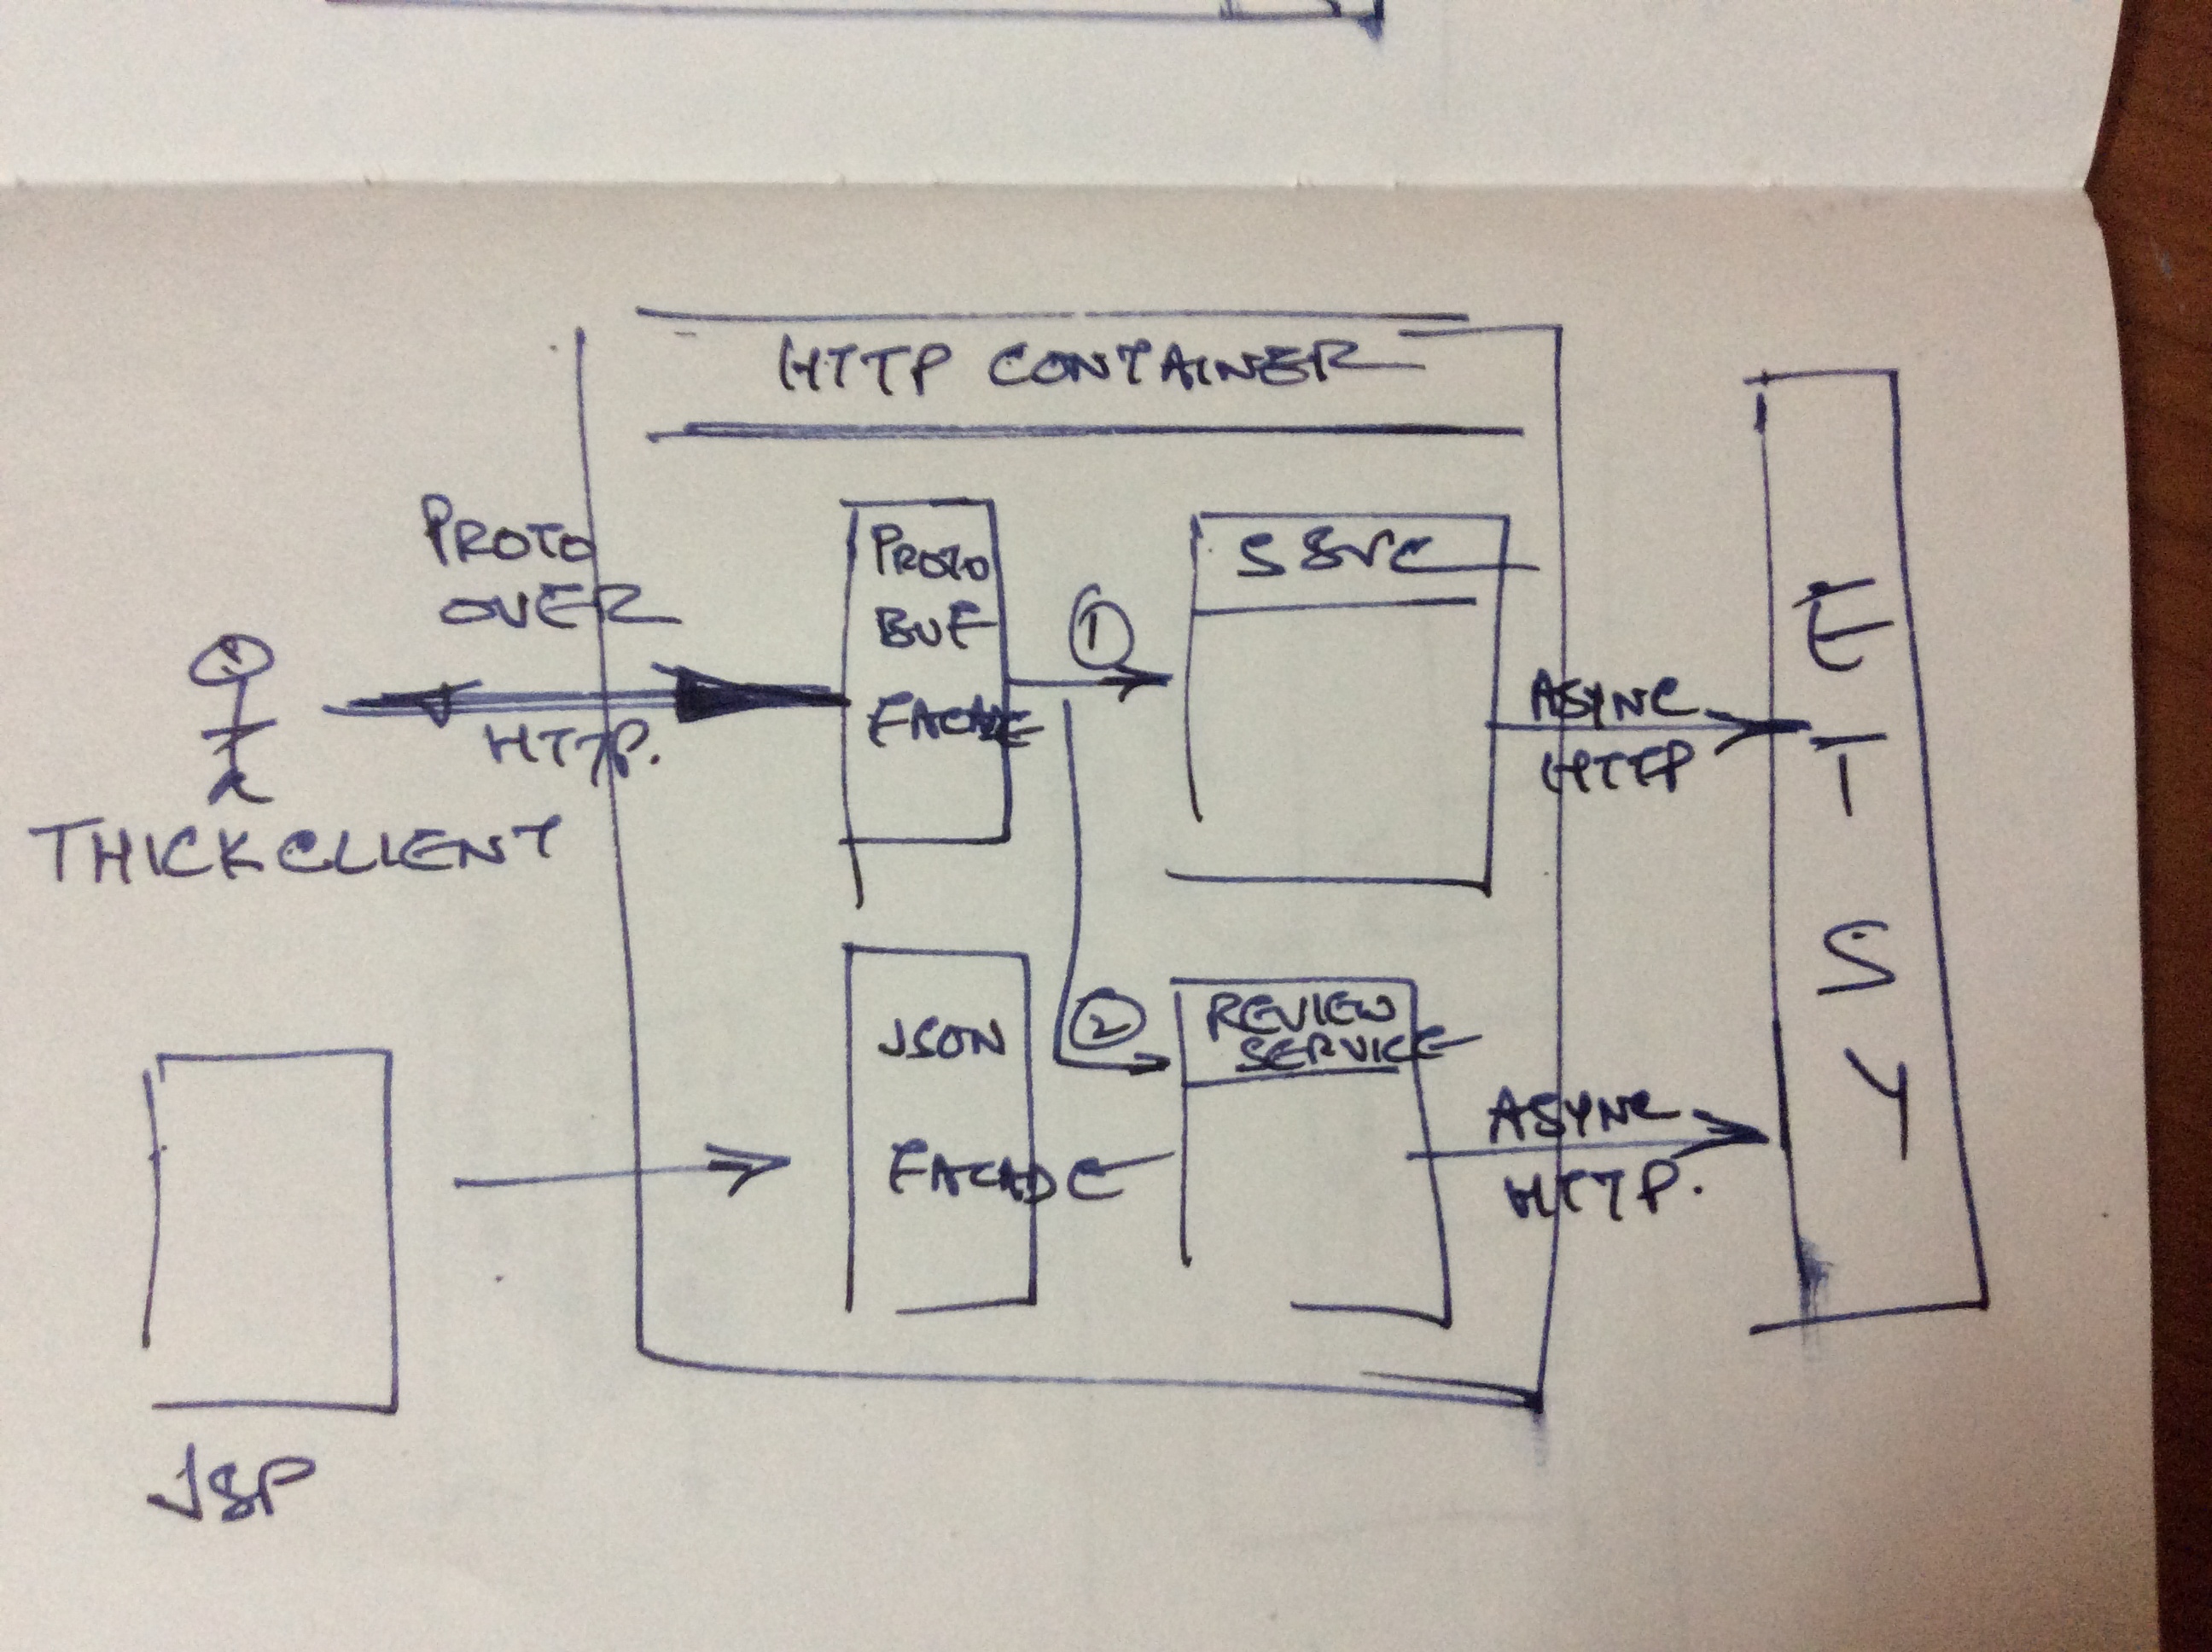 HTTP CONTAINER
PROTO
OVER
HTTP.
THICK CLIENT
PROTO
BUF
FACADE
1
ASYNC
HTTP
E
T
S
Y
JSON
FACADE
2
REVIEW
SERVICE
ASYNC
HTTP.
JSP